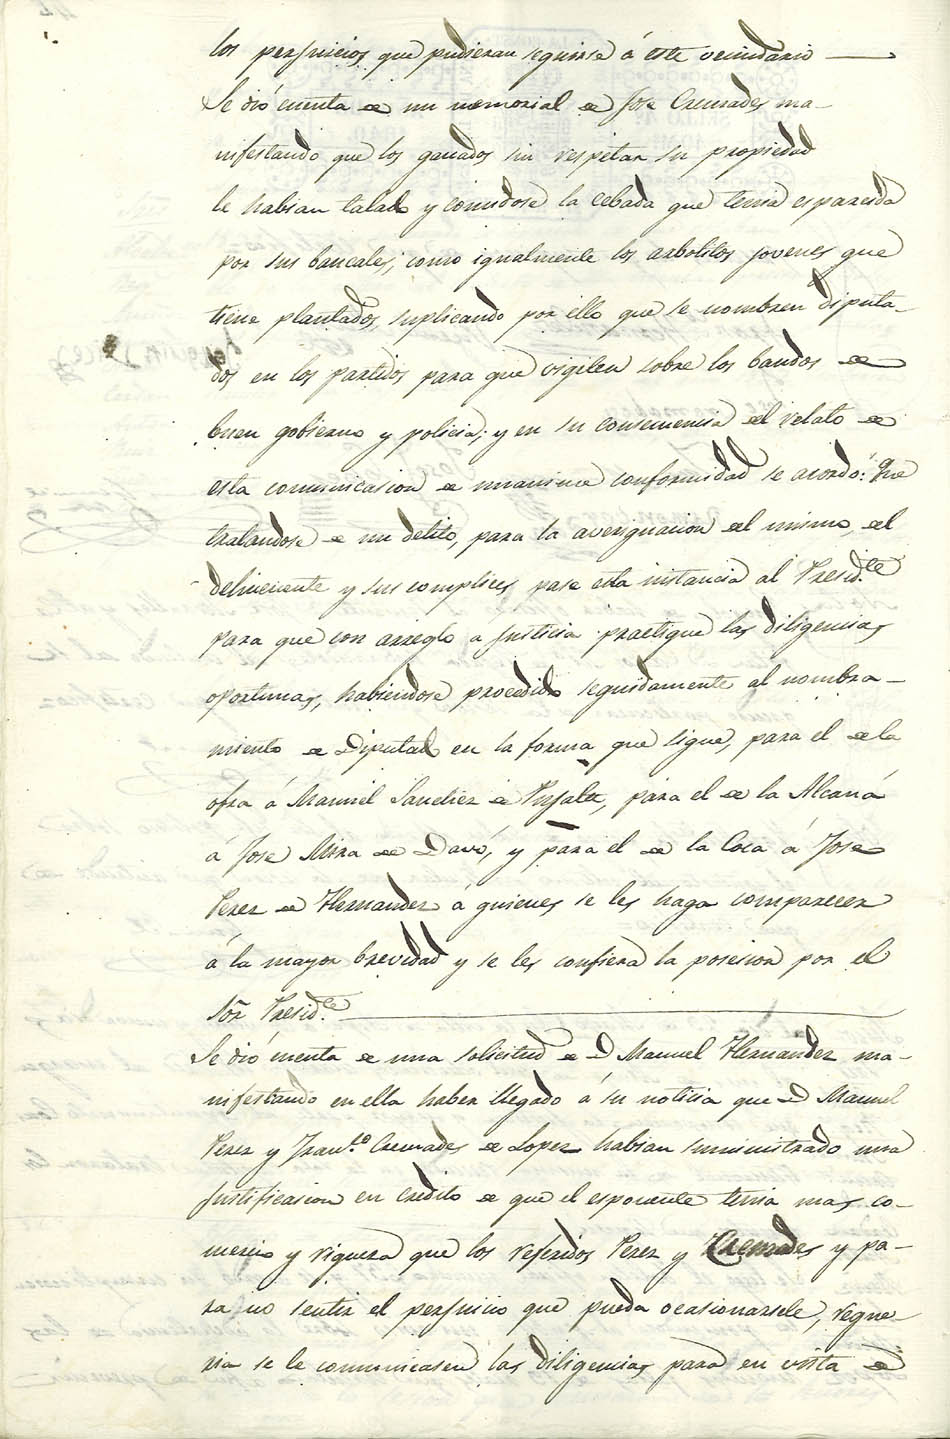 los perjuicios que pudieran seguirse á este vecindario
Se dió cuenta de un memorial de Jose Cremades ma-
nifestando que los ganados sin respetar su propiedad
le habian talado y comidose la cebada que tenia esparcida
por sus bancales; como igualmente los arbolitos jovenes que
tiene plantados, suplicando por ello que se nombren diputa-
dos en los partidos para que vigilen sobre los bandos de
buen gobierno y policia; y en su consecuencia del relato de
esta comunicacion de unanime conformidad se acordó: Que
tratandose de un delito, para la averiguacion del mismo, del
delincuente y sus complices, pase esta instancia al Presid.te
para que con arreglo a justicia practique las diligencias
oportunas, habiendose procedido seguidamente al nombra-
miento de Diputado en la forma que sigue, para el de la
ofra á Manuel Sanchez de Pujalte, para el de la Alcaná
á Jose Mira de Davó, y para el de la Coca á Jose
Perez de Hernandez á quienes se les haga comparecer
á la mayor brevedad y se les confiera la posesion por el
Sõr Presid.te
Se dió cuenta de una solicitud de D Manuel Hernandez ma-
nifestando en ella haber llegado á su noticia que D Manuel
Perez y Fran.co Cremades de Lopez habian suministrado una
justificasion en credito de que el esponente tenia mas co-
mercio y riqueza que los referidos Perez y Cremades y pa-
ra no sentir el perjuicio que pueda ocasionarsele, reque-
ria se le comunicasen las diligencias para en vista de